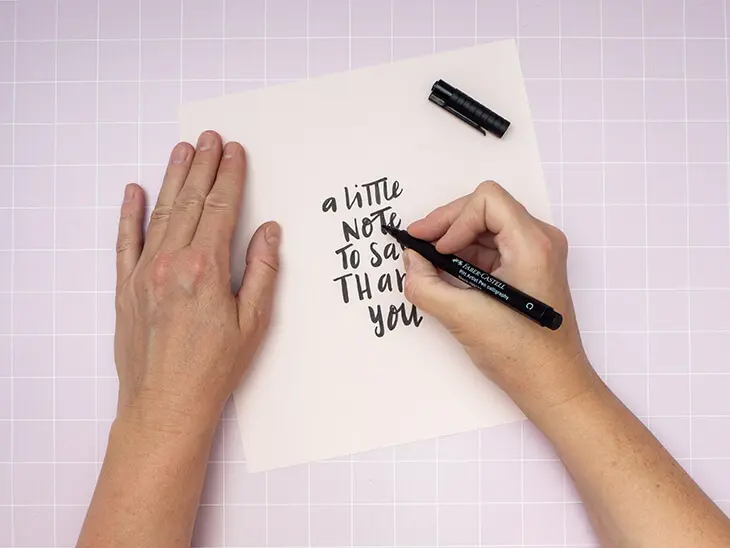 a little
NOTE
TO Sa
THan
you
FABER-CASTELL
Pitt Artist Pen calligraphy
C